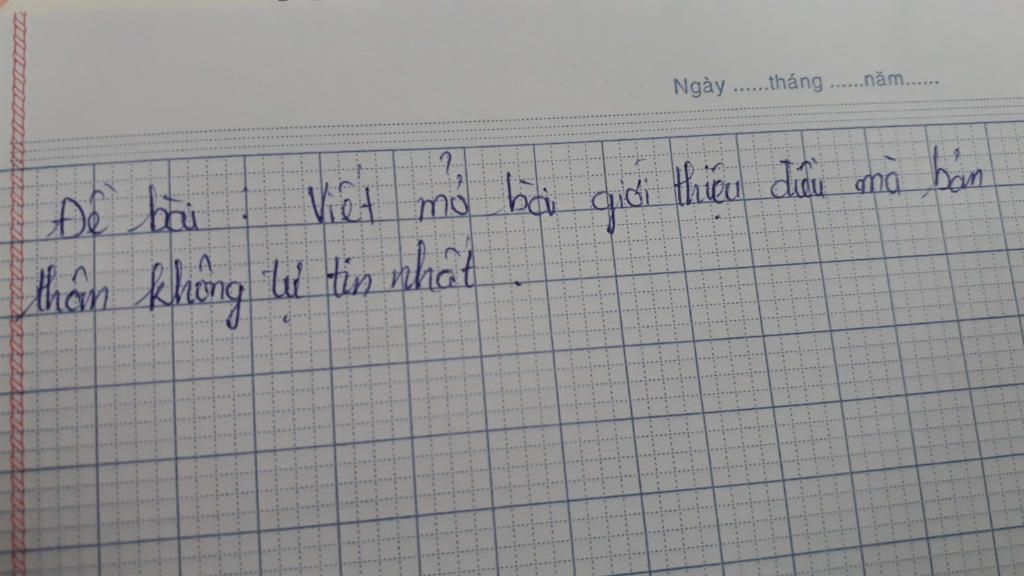 Ngày ......tháng ......năm......
Đề bài : Viết mở bài giới thiệu điều mà bản
thân không tự tin nhất .